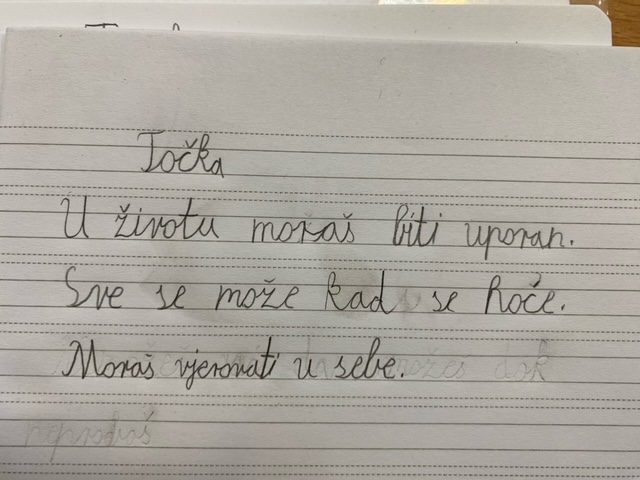 Točka
U životu moraš biti uporan.
Sve se može kad se hoće.
Moraš vjerovati u sebe.